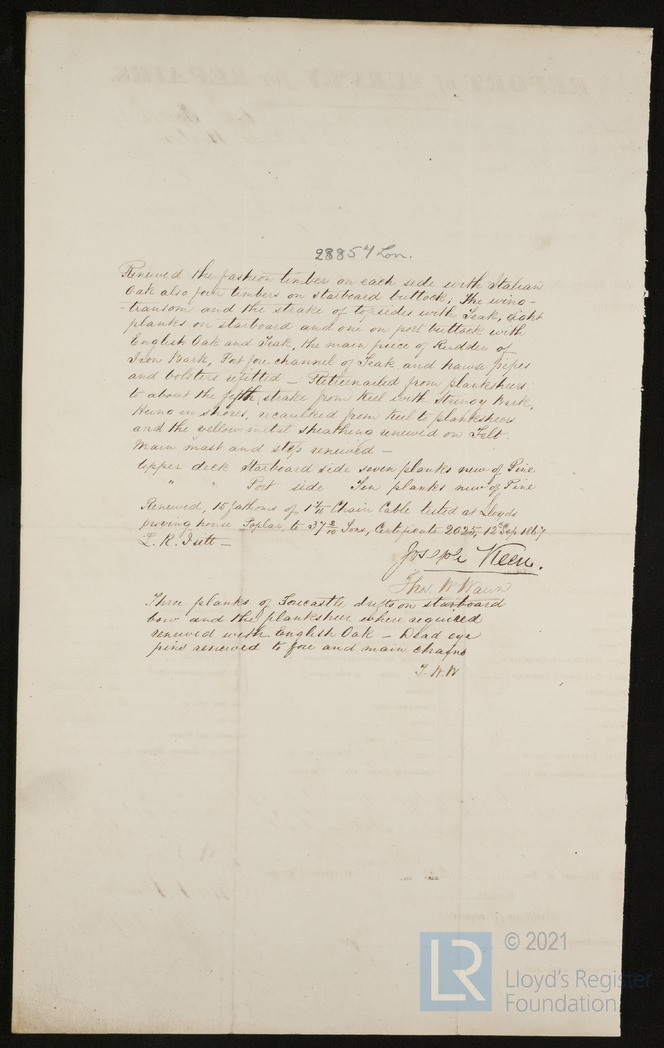 28854 Lon.
Renewed the fashion timbers on each side with Italian
Oak also four timbers on starboard buttock; The wing-
-transom and the strake of topsides with Teak, eight
planks on starboard and one on port buttock with
English Oak and Teak, the main piece of Rudder of
Iron Bark, Port fore channel of Teak and hawse pipes
and bolsters refitted - Retreenailed from planksheers
to about the fifth strake from Keel with Stringy Bark,
Hung in shores, recaulked from Keel to planksheers
and the yellow metal sheathing renewed on Felt.
Main mast and step renewed -
Upper deck Starboard side seven planks new of Pine
" " Port side Ten planks new of Pine
Renewed, 15 fathoms of 1 Chain Cable tested at Lloyds
proving house Poplar, to 37 2/10 Tons, Certificate 2025, 12 Sep 1867
L. K.
Joseph Keen.
Thos. W Wawn
Three planks of Forecastle drifts on starboard
bow and the planksheer where required
renewed with English Oak - Dead eye
pins renewed to fore and main chains
T. W. W
LR
© 2021
Lloyd's Register
Foundation